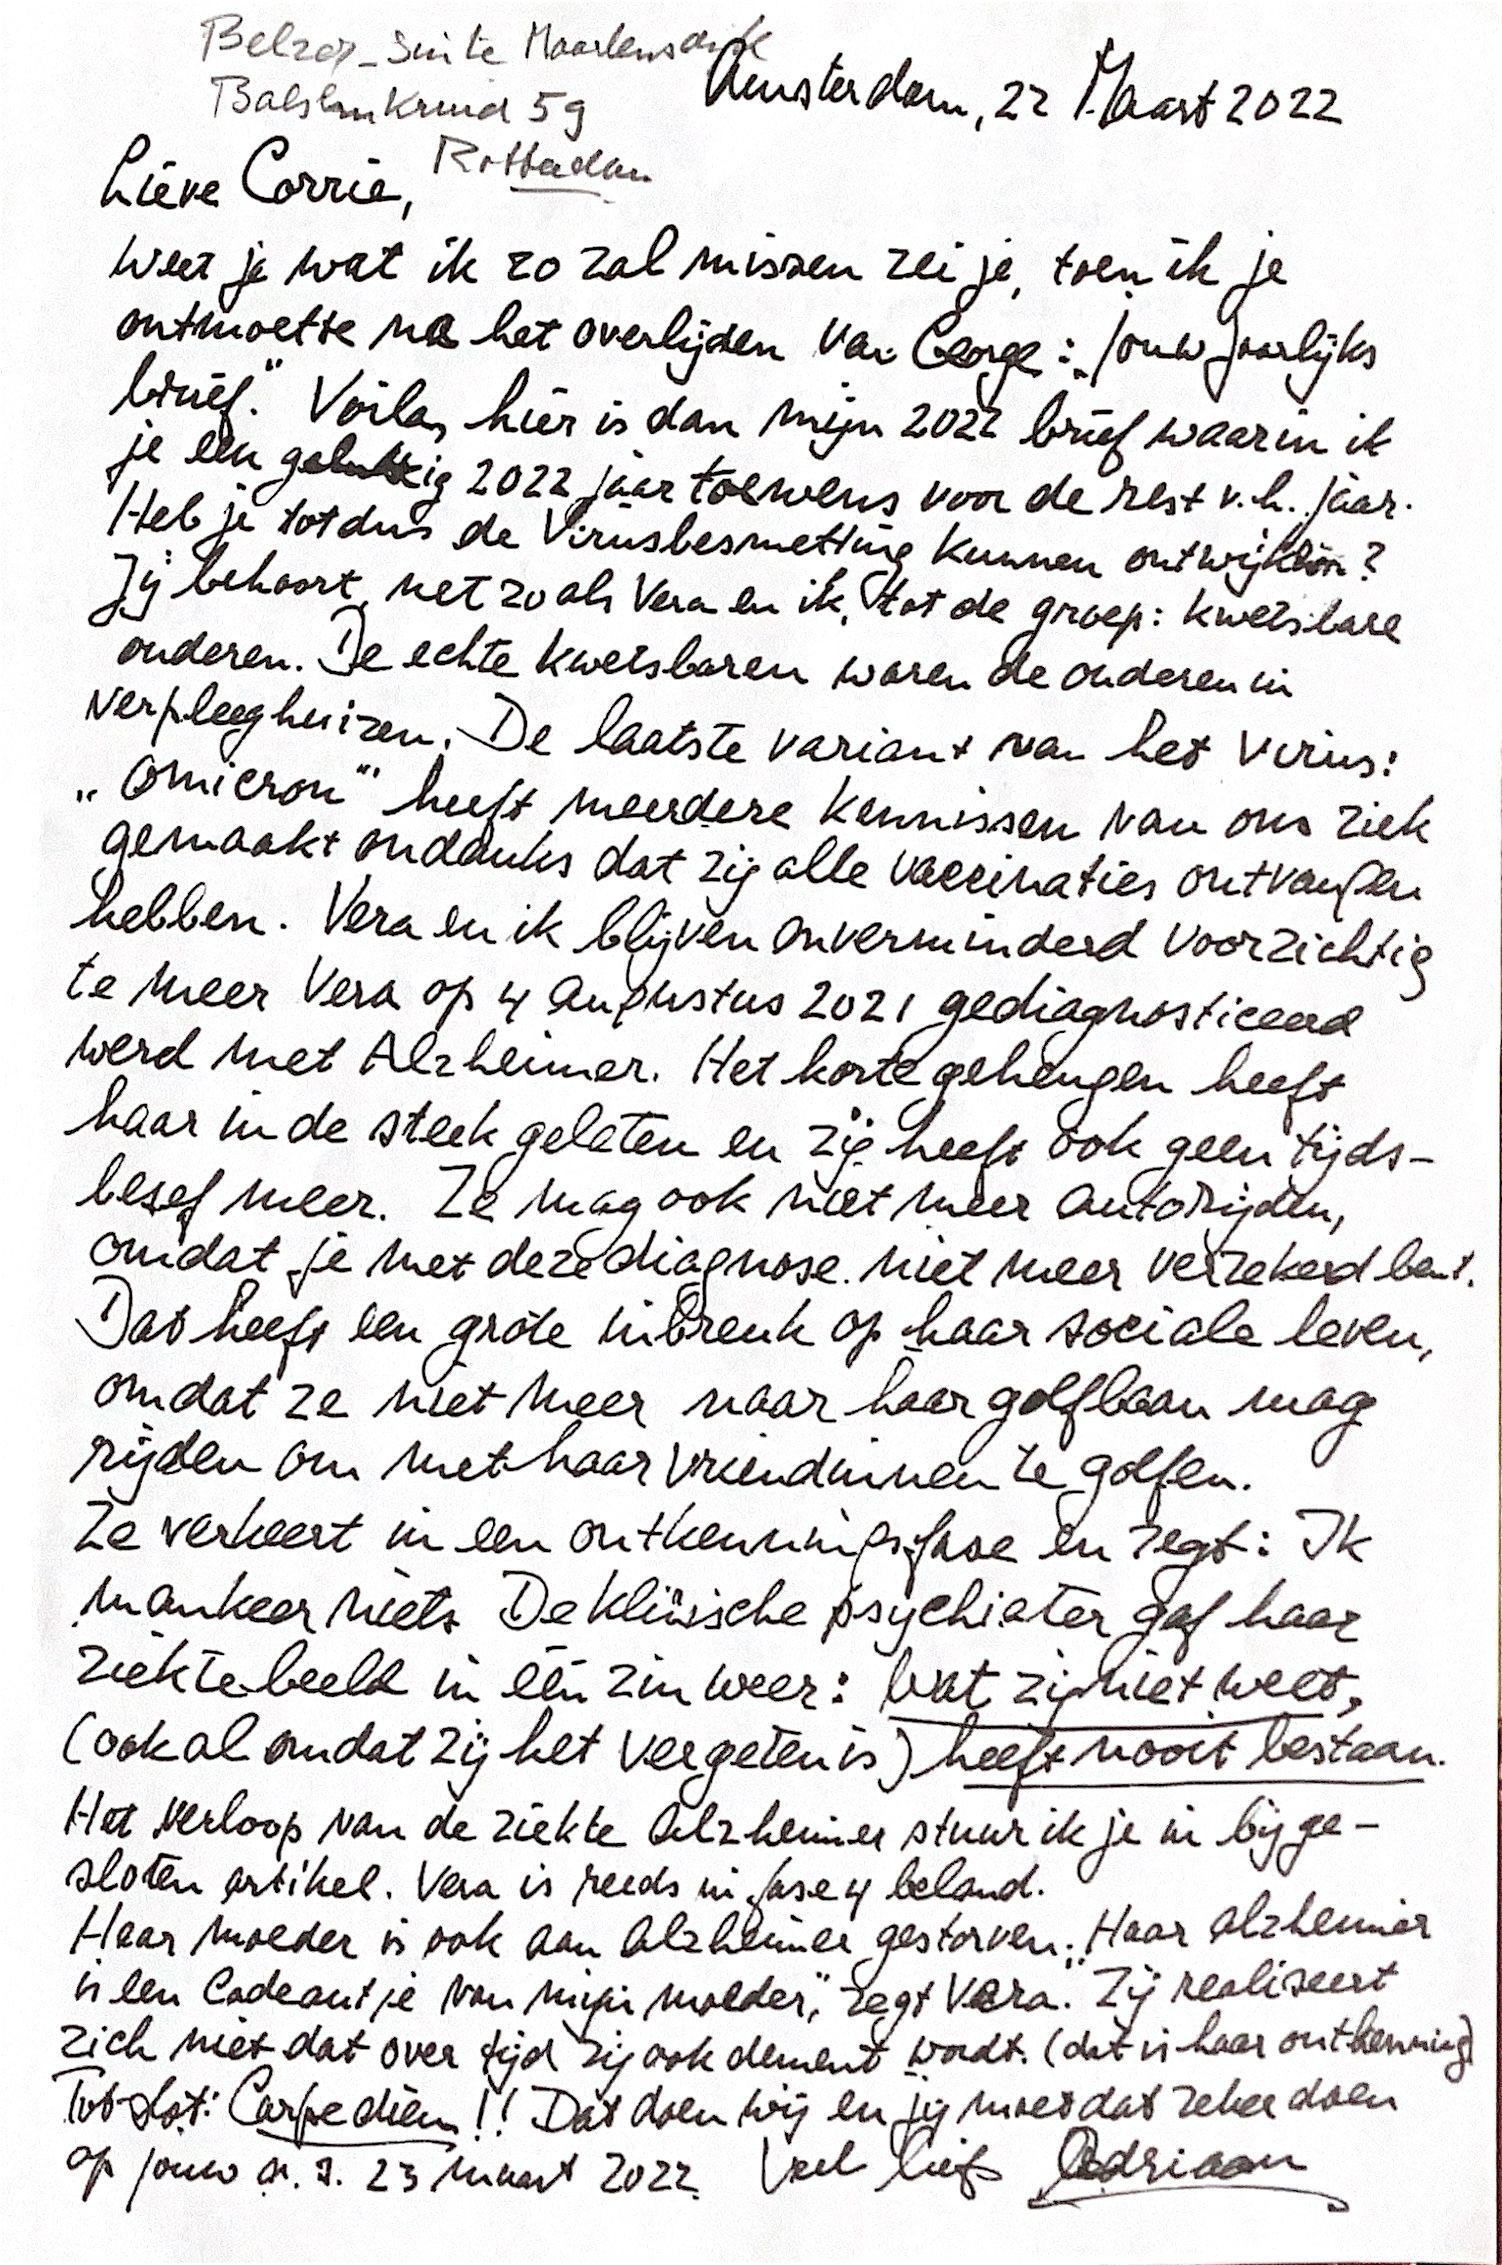 Suite
Amsterdam, 22 Maart 2022
5g
Lieve Corrie,
Rotterdam
weet je wat ik zo zal missen zei je, toen ik je
ontmoette na het overlijden van George: „Jouw jaarlijks
brief." Voila, hier is dan mijn 2022 brief waarin ik
je een gelukkig 2022 jaar toewens voor de rest v.h. jaar.
Heb je totdus de Virusbesmetting kunnen ontwijken?
Jij behoort, net zoals Vera en ik, tot de groep: kwetsbare
ouderen. De echte kwetsbaren waren de ouderen in
verpleeghuizen. De laatste variant van het virus:
„Omicron" heeft meerdere kennissen van ons ziek
gemaakt ondanks dat zij alle vaccinaties ontvangen
hebben. Vera en ik blijven onverminderd voorzichtig
te meer Vera op 4 augustus 2021 gediagnosticeerd
werd met Alzheimer. Het korte geheugen heeft
haar in de steek gelaten en zij heeft ook geen tijds-
besef meer. Ze mag ook niet meer autorijden,
omdat je met deze diagnose niet meer verzekerd bent.
Dat heeft een grote inbreuk op haar sociale leven,
omdat ze niet meer naar haar golfbaan mag
rijden om met haar vriendinnen te golfen.
Ze verkeert in een ontkenningsfase en zegt: Ik
mankeer niets. De klinische psychiater gaf haar
ziektebeeld in één zin weer: Wat zij niet weet,
(ook al omdat zij het vergeten is) heeft nooit bestaan.
Het verloop van de ziekte alzheimer stuur ik je in bijge-
sloten artikel. Vera is reeds in fase 4 beland.
Haar moeder is ook aan alzheimer gestorven. Haar alzheimer
is een Cadeautje van mijn moeder," zegt Vera. Zij realiseert
zich niet dat over tijd zij ook dement wordt. (dat is haar ontkenning)
Tot slot: Carpe diem!! Dat doen wij en jij moet dat zeker doen
op jouw 23 maart 2022. Veel liefs Adriaan